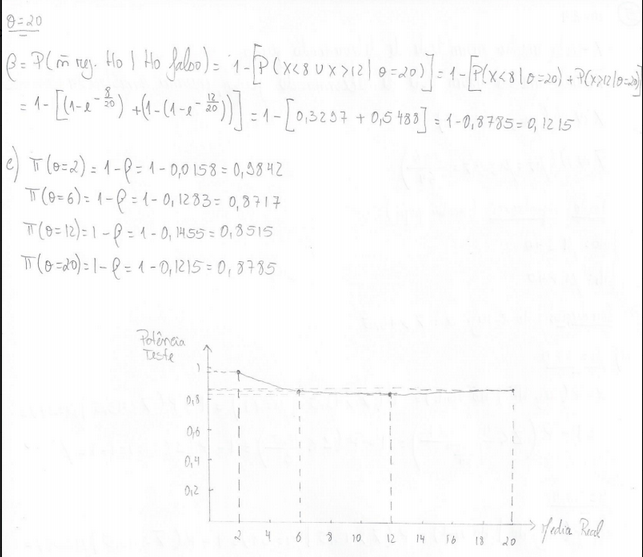 θ=20
β = P(ñ rej. H0 | H0 falso) = 1-[P(X<8 ∪ X>12 | θ=20)] = 1-[P(X<8 | θ=20) + P(X>12 | θ=20)]
= 1-[(1-e^{-8/20}) + (1-(1-e^{-12/20}))] = 1-[0,3297 + 0,5488] = 1-0,8785 = 0,1215
e) π(θ=2) = 1-β = 1-0,0158 = 0,9842
π(θ=6) = 1-β = 1-0,1283 = 0,8717
π(θ=12) = 1-β = 1-0,1455 = 0,8515
π(θ=20) = 1-β = 1-0,1215 = 0,8785
Potência
Teste
1
0,8
0,6
0,4
0,2
2 4 6 8 10 12 14 16 18 20 Média Real